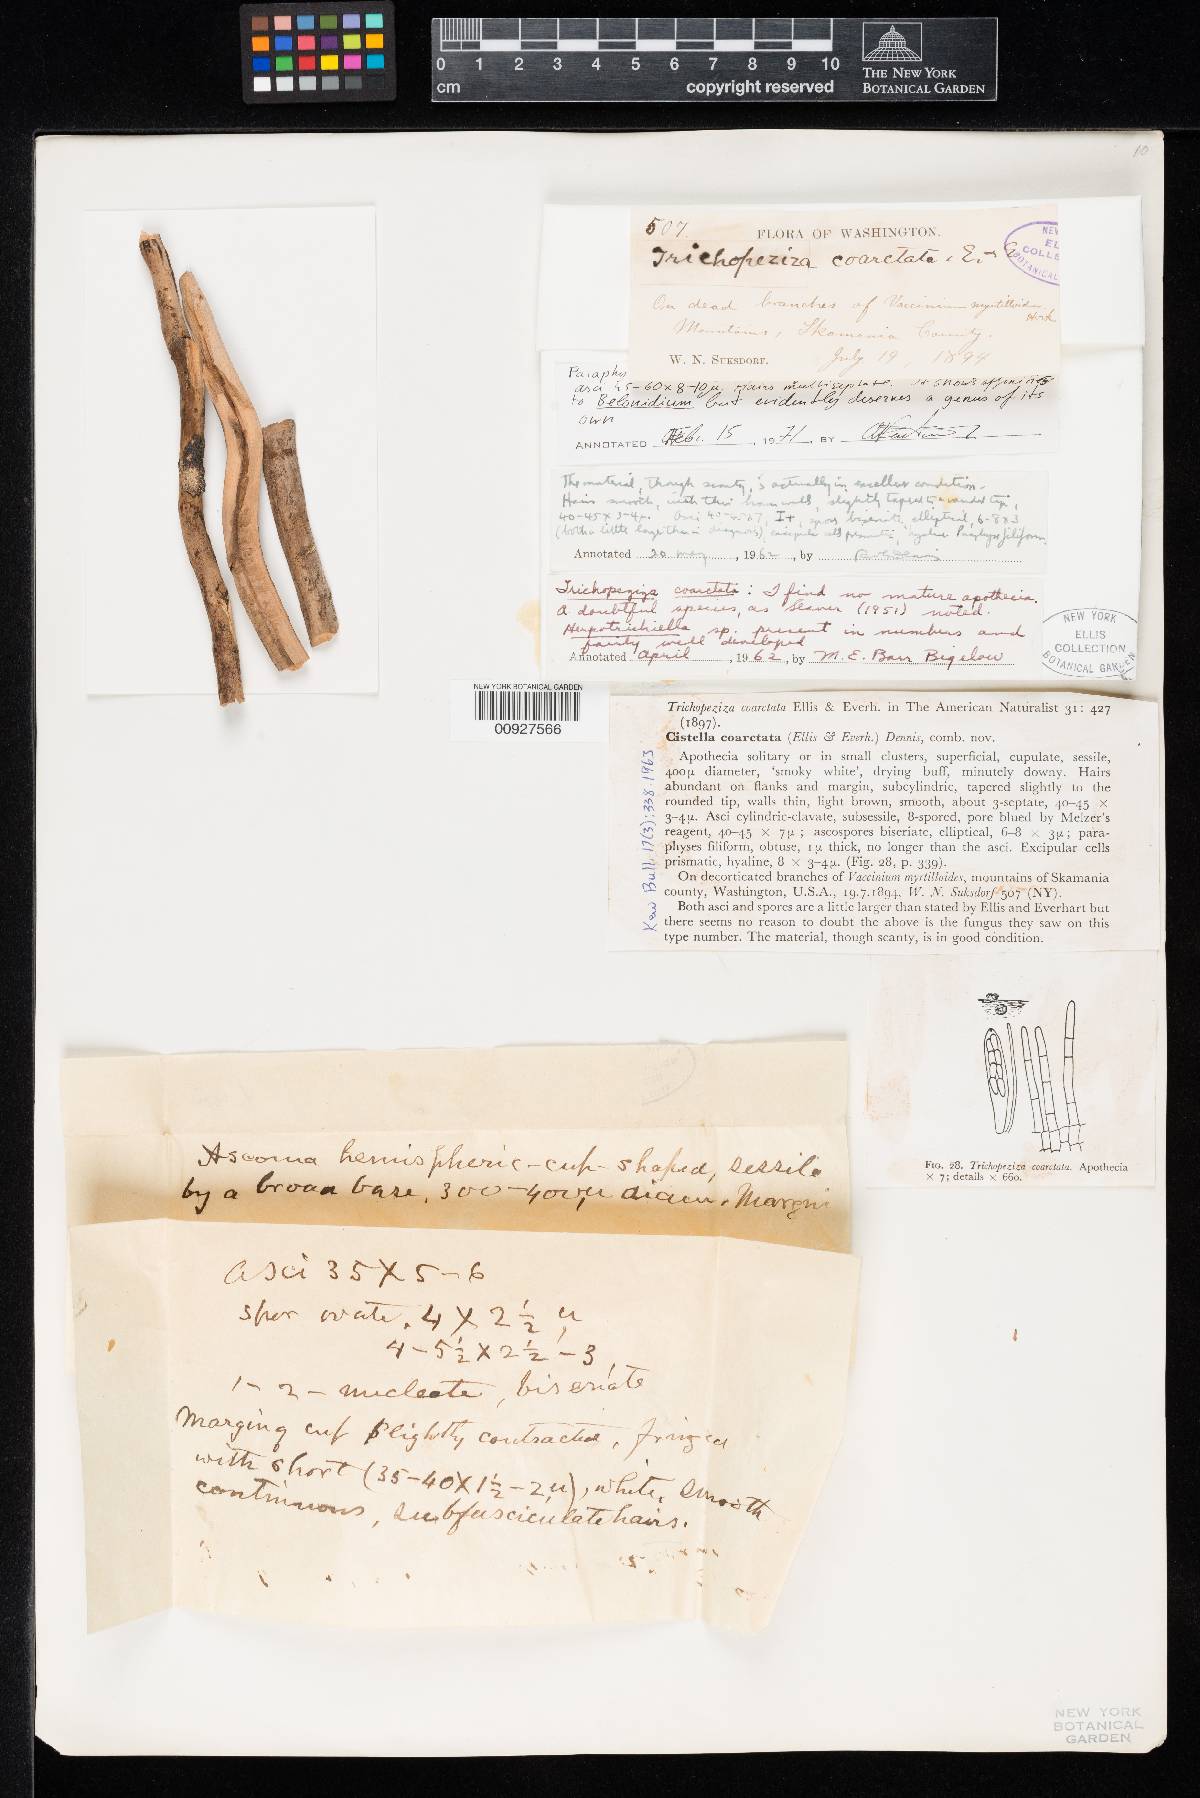 0 1 2 3 4 5 6 7 8 9 10
cm
copyright reserved
THE NEW YORK
BOTANICAL GARDEN
10
507.
FLORA OF WASHINGTON.
Trichopeziza coarctata. E. + Ev
NEW
EL
COLLE
BOTANICAL
On dead branches of Vaccinium myrtilloides
Hook
Mountains, Skamania County.
W. N. SUKSDORF.
July 19, 1894
Paraphy
asci 45-60x8-10µ. Hairs multiseptate. It shows affinities
to Belonidium but evidently deserves a genus of its
own
ANNOTATED Feb. 15, 1971, BY
The material, though scanty, is actually in excellent condition.
Hairs smooth, with thin brown walls, slightly tapered to a rounded tip,
40-45 x 3-4µ. Asci 40-45x7, I+, spores biseriate, elliptical, 6-8x3
(both a little larger than in diagnosis), excipular cells prismatic, hyaline. Paraphyses filiform.
Annotated 20 May, 1962, by
Trichopeziza coarctata: I find no mature apothecia.
A doubtful species, as Seaver (1951) noted.
Herpotrichiella sp. present in numbers and
fairly well developed
Annotated April, 1962, by M. E. Barr Bigelow
NEW YORK
ELLIS
COLLECTION
BOTANICAL GARDEN
NEW YORK BOTANICAL GARDEN
00927566
Trichopeziza coarctata Ellis & Everh. in The American Naturalist 31: 427
(1897).
Cistella coarctata (Ellis & Everh.) Dennis, comb. nov.
Apothecia solitary or in small clusters, superficial, cupulate, sessile,
400µ diameter, 'smoky white', drying buff, minutely downy. Hairs
abundant on flanks and margin, subcylindric, tapered slightly to the
rounded tip, walls thin, light brown, smooth, about 3-septate, 40–45 ×
3–4µ. Asci cylindric-clavate, subsessile, 8-spored, pore blued by Melzer's
reagent, 40–45 × 7µ; ascospores biseriate, elliptical, 6–8 × 3µ; para-
physes filiform, obtuse, 1µ thick, no longer than the asci. Excipular cells
prismatic, hyaline, 8 × 3–4µ. (Fig. 28, p. 339).
On decorticated branches of Vaccinium myrtilloides, mountains of Skamania
county, Washington, U.S.A., 19.7.1894, W. N. Suksdorf 507 (NY).
Both asci and spores are a little larger than stated by Ellis and Everhart but
there seems no reason to doubt the above is the fungus they saw on this
type number. The material, though scanty, is in good condition.
Kew Bull. 17(3):338.1963
FIG. 28. Trichopeziza coarctata. Apothecia
× 7; details × 660.
Ascoma hemispheric-cup-shaped, sessile
by a broad base, 300-400µ diam. Margin
Asci 35 X 5-6
spor ovate, 4 X 2½ µ
4-5½ X 2½-3,
1-2-nucleate, biseriate
Marging cup slightly contracted, fringed
with short (35-40 X 1½-2µ), white, smooth
continuous, subfasciculate hairs.
NEW YORK
BOTANICAL
GARDEN